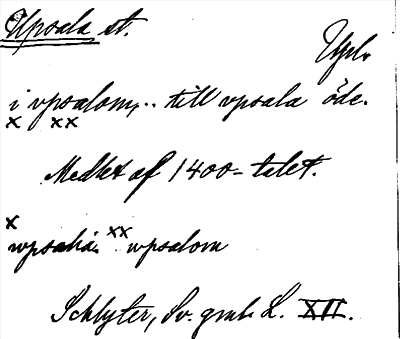 Upsala st.
Upl.
i vpsalom, .. till vpsala öde.
x xx
Medlet af 1400-talet.
x xx
wpsahä. wpsalom
Schlyter, Sv. gml. L. XII.